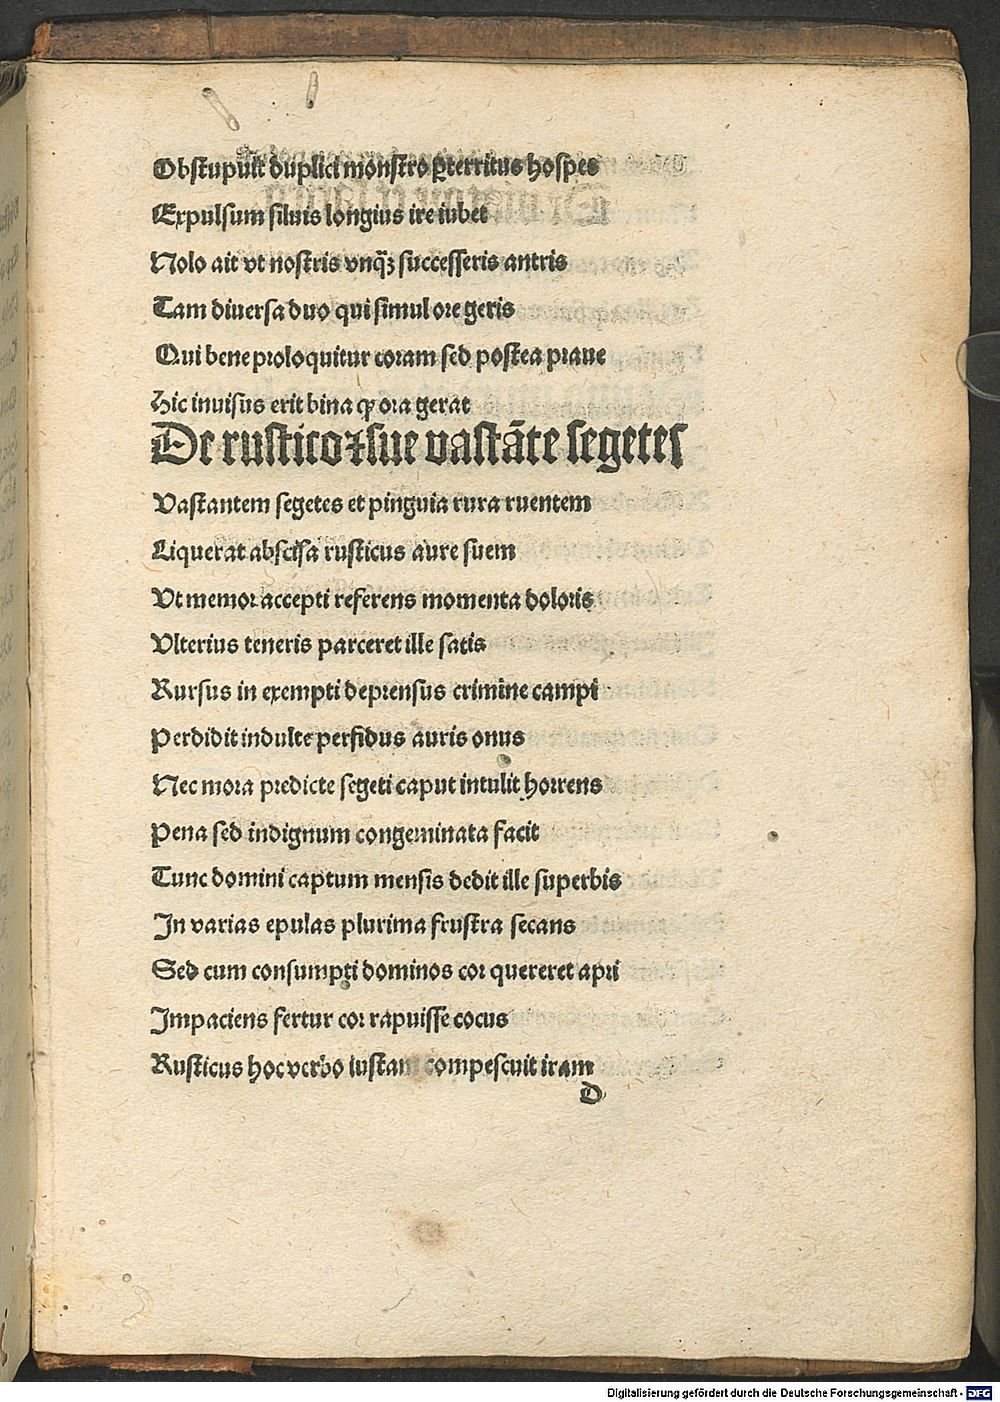 Obstupuit duplici monstro ꝑterritus hospes
Expulsum siluis longius ire iubet
Nolo ait vt nostris vnqꝫ successeris antris
Tam diuersa duo qui simul ore geris
Qui bene proloquitur coram sed postea praue
Hic inuisus erit bina ꝙ ora gerat
De rustico ⁊ sue vastāte segetes
Vastantem segetes et pinguia rura ruentem
Liquerat abscisa rusticus aure suem
Vt memor accepti referens momenta doloris
Vlterius teneris parceret ille satis
Rursus in exempti deprensus crimine campi
Perdidit indulte perfidus auris onus
Nec mora predicte segeti caput intulit horrens
Pena sed indignum congeminata facit
Tunc domini captum mensis dedit ille superbis
In varias epulas plurima frustra secans
Sed cum consumpti dominos cor quereret apri
Impaciens fertur cor rapuisse cocus
Rusticus hoc verbo iustam compescuit iram
D
Digitalisierung gefördert durch die Deutsche Forschungsgemeinschaft - DFG